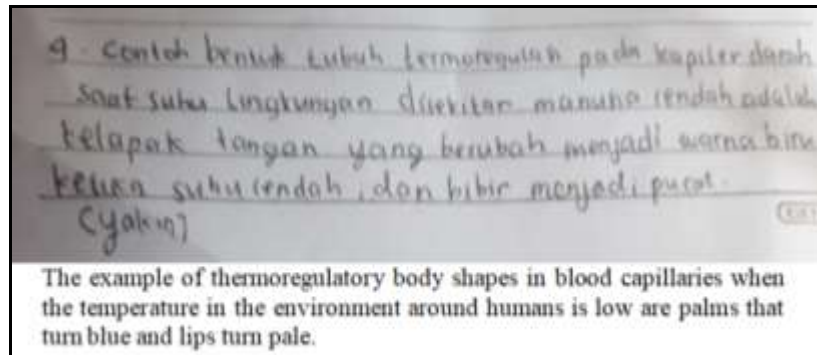 9. Contoh bentuk tubuh termoregulasi pada kapiler darah
saat suhu lingkungan disekitar manusia rendah adalah
telapak tangan yang berubah menjadi warna biru
ketika suhu rendah, dan bibir menjadi pucat.
(yakin)
The example of thermoregulatory body shapes in blood capillaries when
the temperature in the environment around humans is low are palms that
turn blue and lips turn pale.